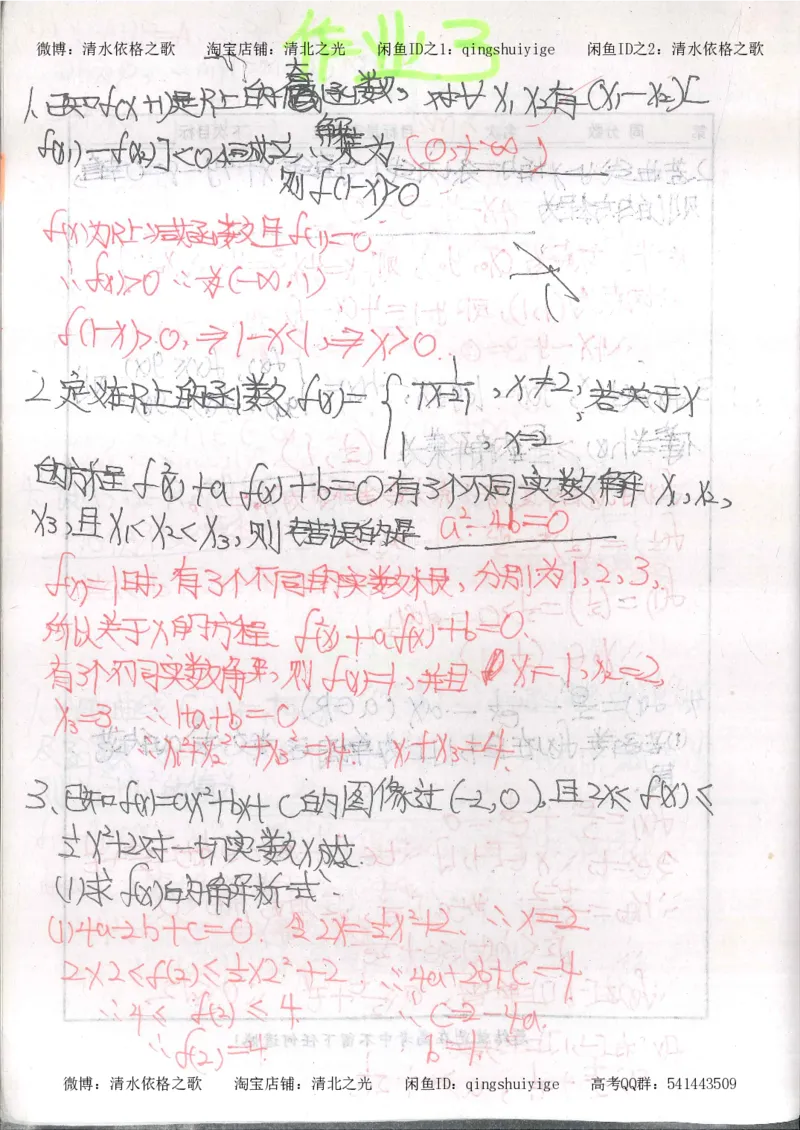 作业3
微博：清水依格之歌 淘宝店铺：清北之光 闲鱼ID之1：qingshuiyige 闲鱼ID之2：清水依格之歌
1.已知f(x+1)是R上的奇函数,对∀x₁x₂有(x₁-x₂)[
f(x₁)-f(x₂)]<0恒成立∴ 解集为(0,+∞)
则f(1-x)>0
f(x)为R上减函数且f(1)=0
∴f(x)>0∴为(-∞,1)
f(1-x)>0,⇒1-x<1,⇒x>0.
2.定义在R上的函数f(x)={1/|x-2|,x≠2;若关于x
1,x=2
的方程f²(x)+af(x)+b=0有3个不同实数解x₁,x₂,
x₃,且x₁<x₂<x₃,则错误的是a²-4b=0
f(x)=1时,有3个不同的实数根,分别为1,2,3,
所以关于x的方程f²(x)+af(x)+b=0.
有3个不同实数解,则f(x)=1,并且x₁=1,x₂=2,
x₃=3 ∴1+a+b=0
∴x₁²+x₂²+x₃²=14. x₁+x₃=4.
3、已知f(x)=ax²+bx+c的图像过(-2,0),且2x≤f(x)≤
½x²+2对一切实数x成.
(1)求f(x)的解析式.
(1)4a-2b+c=0. 令2x=½x²+2.∴x=2
2×2≤f(2)≤½×2²+2 ∴4a+2b+c=4.
∴4≤f(2)≤4. ∴c=2-4a.
∴f(2)=4 b=1.
微博：清水依格之歌 淘宝店铺：清北之光 闲鱼ID：qingshuiyige 高考QQ群：541443509